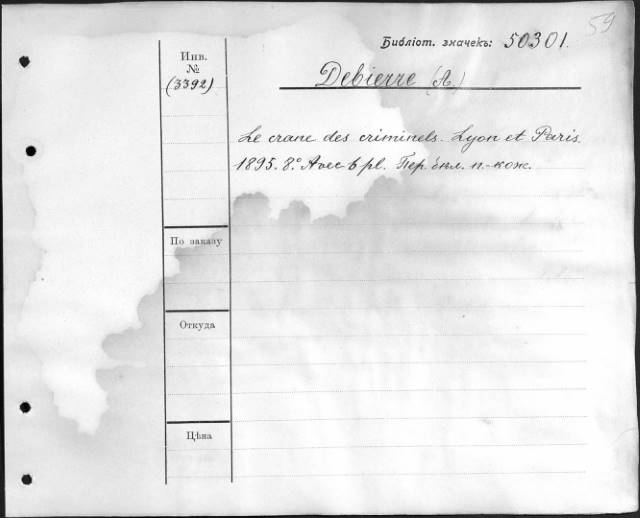 59
Библіот. значекъ: 50301.
Инв.
№
(3392)
Debierre (A.)
Le crane des criminels. Lyon et Paris.
1895. 8.° Avec 6 pl. Пер. бѣл. п.-кож.
По заказу
Откуда
Цѣна